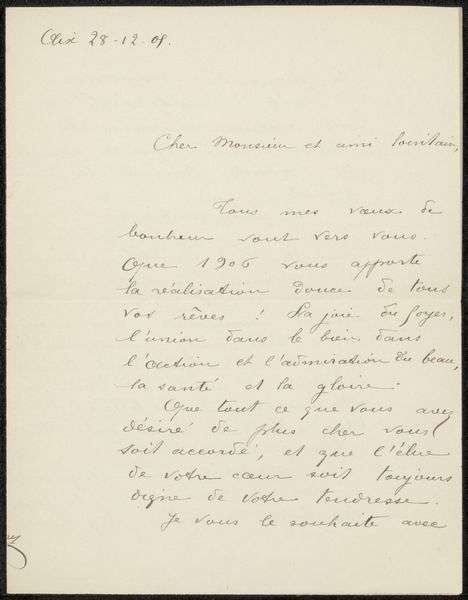 Aix 28-12-05.
Cher Monsieur et ami lointain,
Tous mes vœux de
bonheur vont vers vous.
Que 1906 vous apporte
la réalisation douce de tous
vos rêves ! La joie du foyer,
l'union dans le bien, dans
l'action et l'admiration du beau,
la santé et la gloire.
Que tout ce que vous avez
désiré de plus cher vous
soit accordé, et que l'élue
de votre cœur soit toujours
digne de votre tendresse.
Je vous le souhaite avec